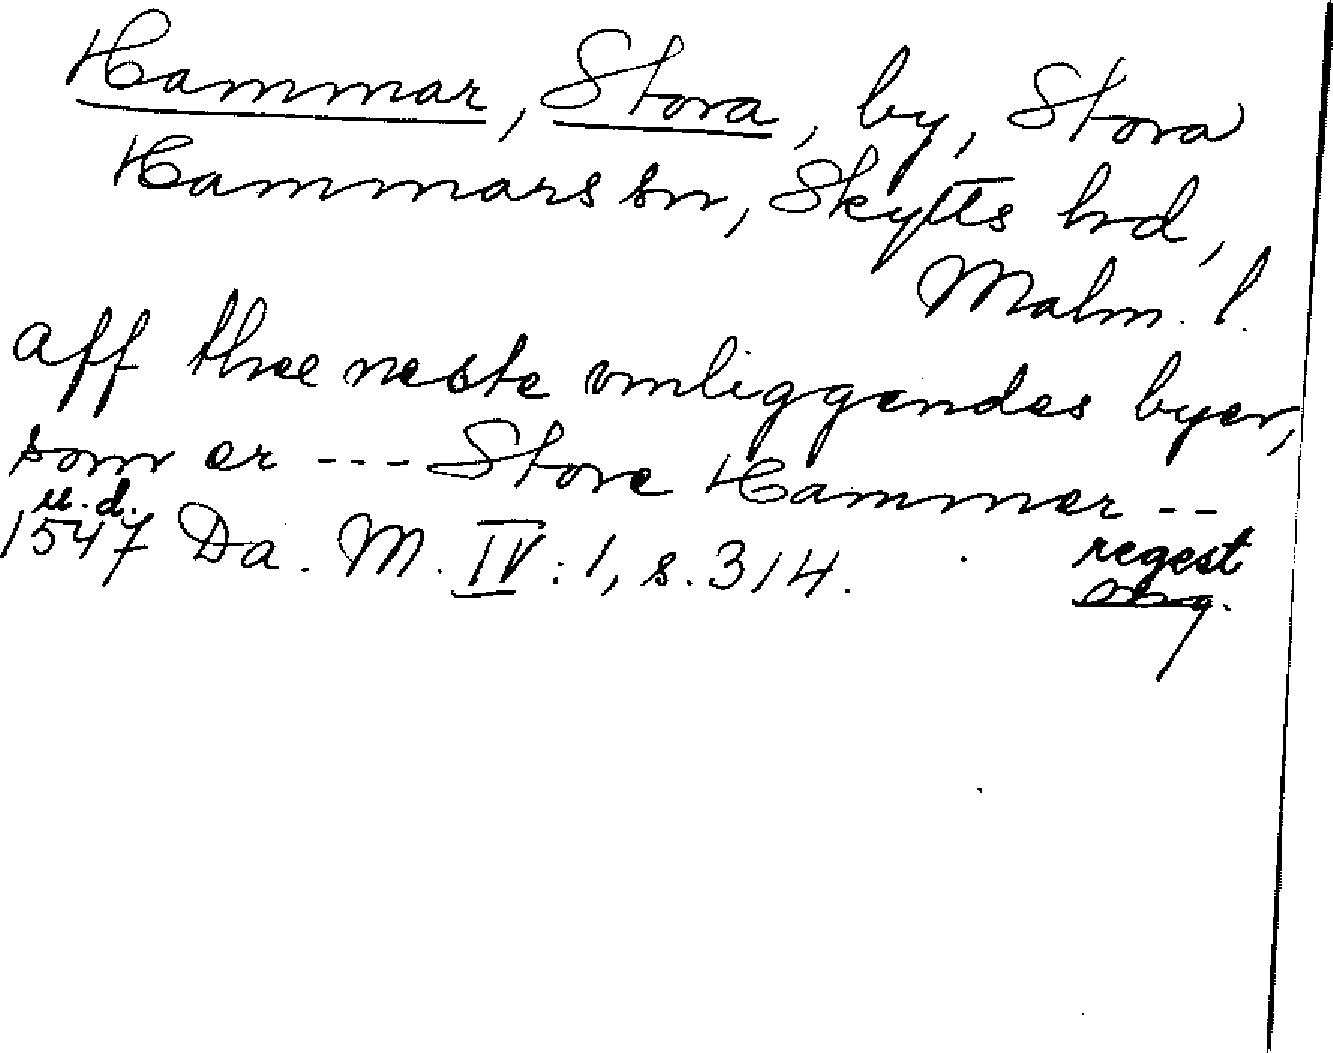 Hammar, Stora, by, Stora
Hammars sn, Skytts hd,
Malm. l.
aff thee neste omliggendes byer,
som er --- Store Hammer --
u.d.
1547 Da. M. IV:1, s. 314.
regest